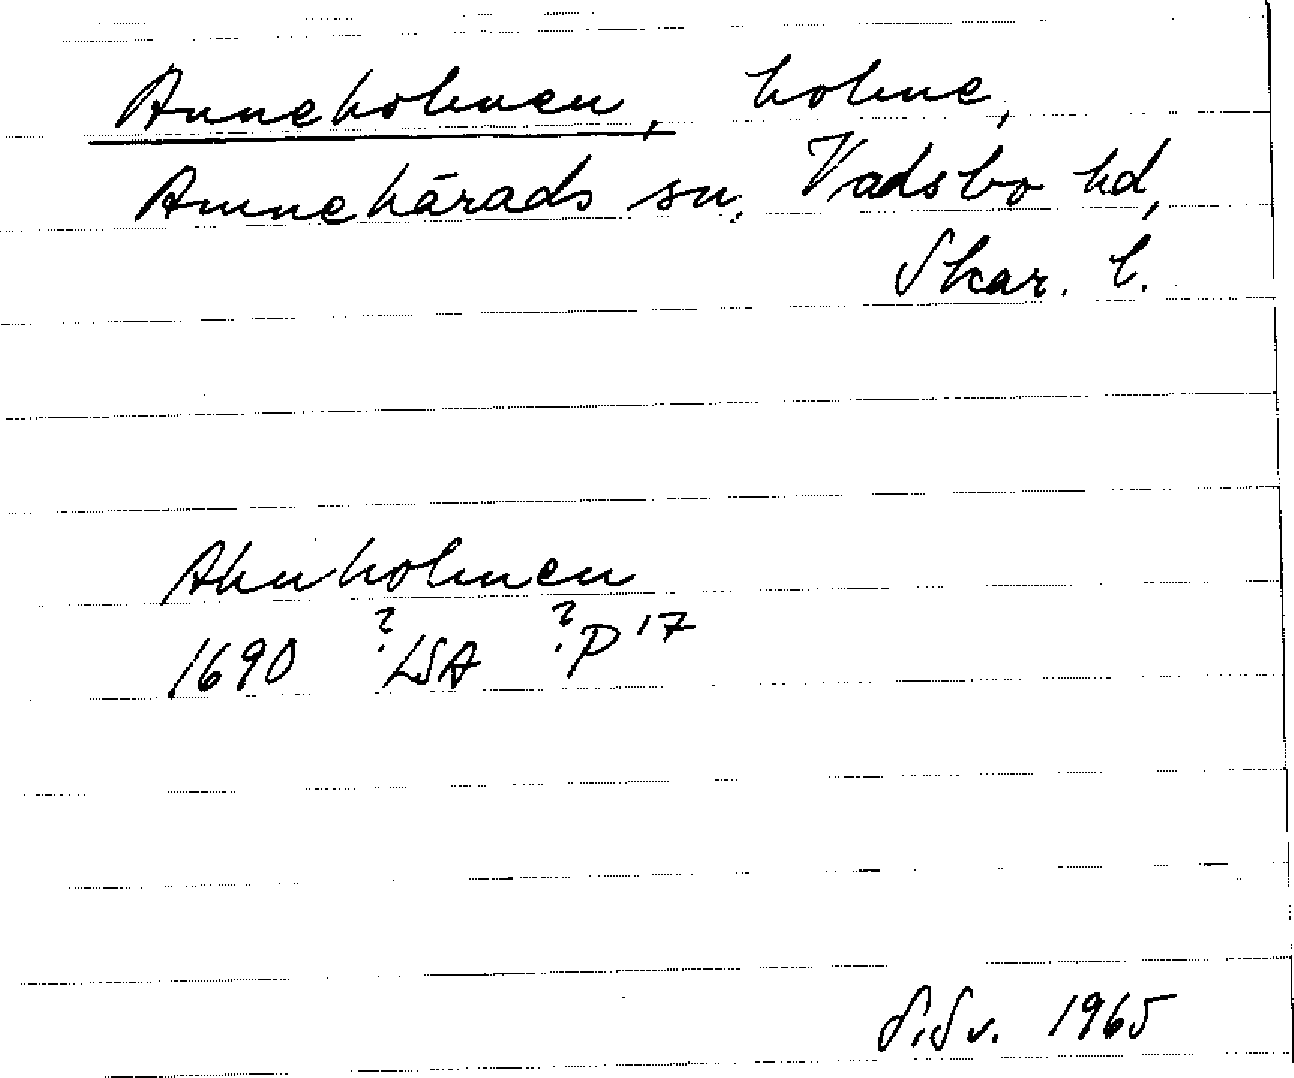 Anneholmen, holme,
Amnehärads sn. Vadsbo hd,
Skar. l.
Ahnholmen
1690 ?LSA ?P 17
S.Sv. 1965